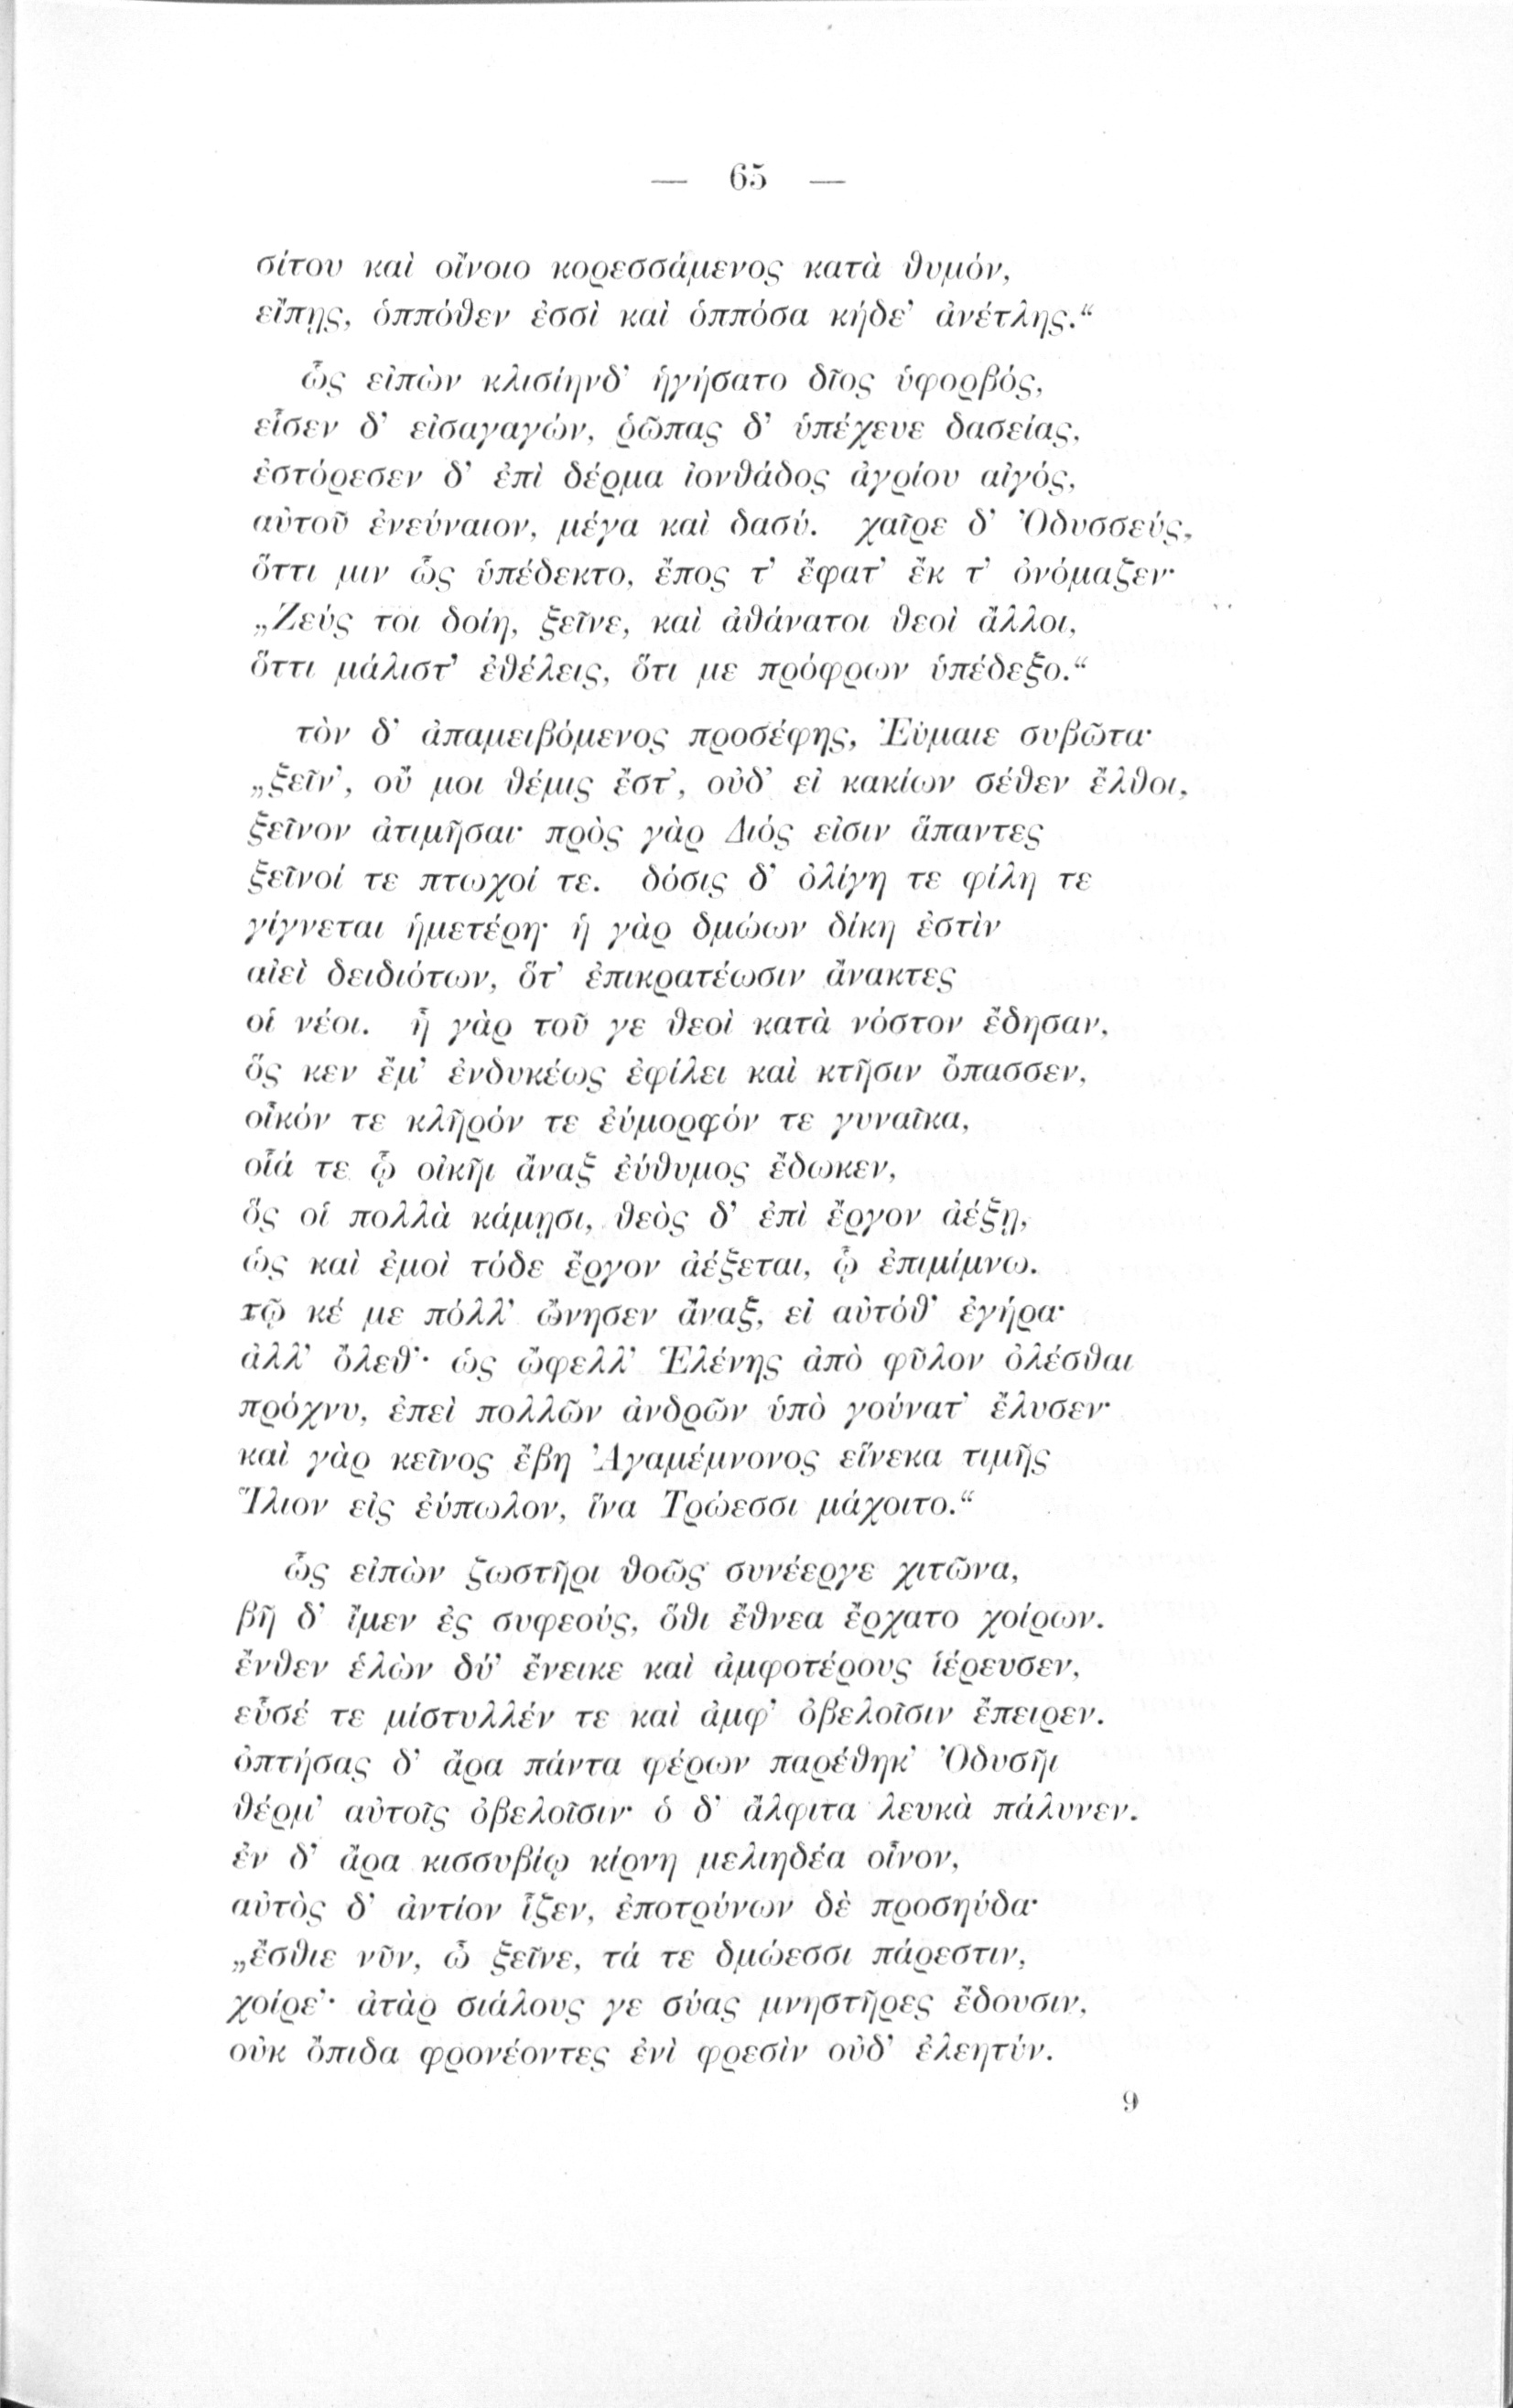 — 65 —
σίτου καὶ οἴνοιο κορεσσάμενος κατὰ θυμόν,
εἴπῃς, ὁππόθεν ἐσσὶ καὶ ὁππόσα κήδε' ἀνέτλης.“
ὣς εἰπὼν κλισίηνδ' ἡγήσατο δῖος ὑφορβός,
εἷσεν δ' εἰσαγαγών, ῥῶπας δ' ὑπέχευε δασείας,
ἐστόρεσεν δ' ἐπὶ δέρμα ἰονθάδος ἀγρίου αἰγός,
αὐτοῦ ἐνεύναιον, μέγα καὶ δασύ. χαῖρε δ' Ὀδυσσεύς,
ὅττι μιν ὣς ὑπέδεκτο, ἔπος τ' ἔφατ' ἔκ τ' ὀνόμαζεν·
„Ζεύς τοι δοίη, ξεῖνε, καὶ ἀθάνατοι θεοὶ ἄλλοι,
ὅττι μάλιστ' ἐθέλεις, ὅτι με πρόφρων ὑπέδεξο.“
τὸν δ' ἀπαμειβόμενος προσέφης, Ἐύμαιε συβῶτα·
„ξεῖν', οὔ μοι θέμις ἔστ', οὐδ' εἰ κακίων σέθεν ἔλθοι,
ξεῖνον ἀτιμῆσαι· πρὸς γὰρ Διός εἰσιν ἅπαντες
ξεῖνοί τε πτωχοί τε. δόσις δ' ὀλίγη τε φίλη τε
γίγνεται ἡμετέρη· ἡ γὰρ δμώων δίκη ἐστὶν
αἰεὶ δειδιότων, ὅτ' ἐπικρατέωσιν ἄνακτες
οἱ νέοι. ἦ γὰρ τοῦ γε θεοὶ κατὰ νόστον ἔδησαν,
ὅς κεν ἔμ' ἐνδυκέως ἐφίλει καὶ κτῆσιν ὄπασσεν,
οἶκόν τε κλῆρόν τε ἐύμορφόν τε γυναῖκα,
οἷά τε ᾧ οἰκῆι ἄναξ ἐύθυμος ἔδωκεν,
ὅς οἱ πολλὰ κάμῃσι, θεὸς δ' ἐπὶ ἔργον ἀέξῃ,
ὡς καὶ ἐμοὶ τόδε ἔργον ἀέξεται, ᾧ ἐπιμίμνω.
τῷ κέ με πόλλ' ὤνησεν ἄναξ, εἰ αὐτόθ' ἐγήρα·
ἀλλ' ὄλεθ'· ὡς ὤφελλ' Ἑλένης ἀπὸ φῦλον ὀλέσθαι
πρόχνυ, ἐπεὶ πολλῶν ἀνδρῶν ὑπὸ γούνατ' ἔλυσεν·
καὶ γὰρ κεῖνος ἔβη Ἀγαμέμνονος εἵνεκα τιμῆς
Ἴλιον εἰς ἐύπωλον, ἵνα Τρώεσσι μάχοιτο.“
ὣς εἰπὼν ζωστῆρι θοῶς συνέεργε χιτῶνα,
βῆ δ' ἴμεν ἐς συφεούς, ὅθι ἔθνεα ἔρχατο χοίρων.
ἔνθεν ἑλὼν δύ' ἔνεικε καὶ ἀμφοτέρους ἱέρευσεν,
εὗσέ τε μίστυλλέν τε καὶ ἀμφ' ὀβελοῖσιν ἔπειρεν.
ὀπτήσας δ' ἄρα πάντα φέρων παρέθηκ' Ὀδυσῆι
θέρμ' αὐτοῖς ὀβελοῖσιν· ὁ δ' ἄλφιτα λευκὰ πάλυνεν.
ἐν δ' ἄρα κισσυβίῳ κίρνη μελιηδέα οἶνον,
αὐτὸς δ' ἀντίον ἷζεν, ἐποτρύνων δὲ προσηύδα·
„ἔσθιε νῦν, ὦ ξεῖνε, τά τε δμώεσσι πάρεστιν,
χοίρε'· ἀτὰρ σιάλους γε σύας μνηστῆρες ἔδουσιν,
οὐκ ὄπιδα φρονέοντες ἐνὶ φρεσὶν οὐδ' ἐλεητύν.
9